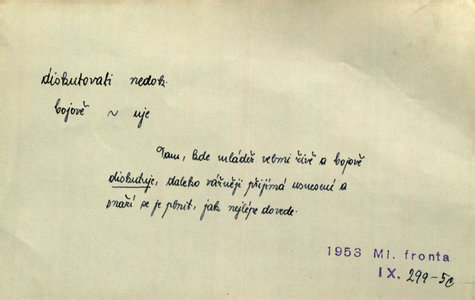 diskutovati nedok.
bojově ~ uje
Tam, kde mládež velmi živě a bojově
diskutuje, daleko vážněji přijímá usnesení a
snaží se je plnit, jak nejlépe dovede.
1953 Ml. fronta
IX. 299-5c